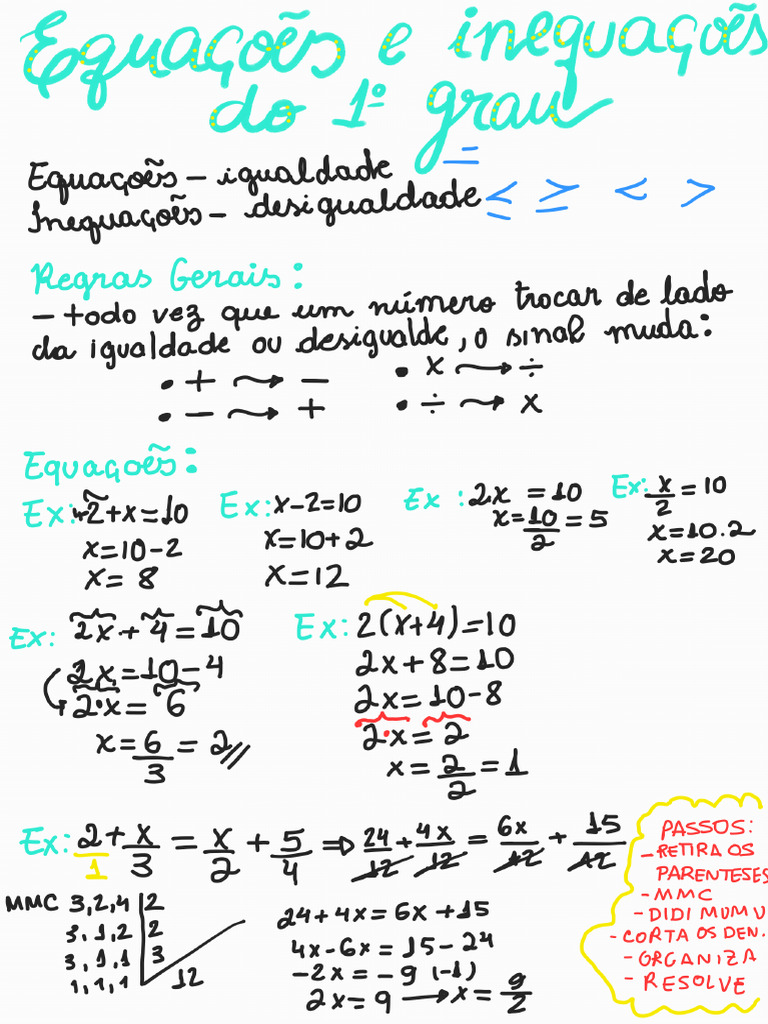 Equações e inequações
do 1º grau
Equações – igualdade =
Inequações – desigualdade ≤ ≥ < >
Regras Gerais:
– todo vez que um número trocar de lado
da igualdade ou desigualde, o sinal muda:
• + → –   • x → ÷
• – → +   • ÷ → x
Equações:
Ex: +2+x=10
x=10-2
x= 8
Ex: x-2=10
x=10+2
x=12
Ex: 2x = 10
x=10/2=5
Ex: x/2=10
x=10.2
x=20
Ex: 2x+4=10
2x=10-4
2·x= 6
x=6/3=2//
Ex: 2(x+4)=10
2x+8=10
2x=10-8
2·x=2
x=2/2=1
Ex: 2/1+x/3=x/2+5/4 ⇒ 24/12+4x/12=6x/12+15/12
MMC 3,2,4|2
3,1,2|2
3,1,1|3
1,1,1 12
24+4x=6x+15
4x-6x=15-24
-2x=-9 (-1)
2x=9 → x=9/2
PASSOS:
- RETIRA OS
PARENTESES
- MMC
- DIDI MUMU
- CORTA OS DEN.
- ORGANIZA
- RESOLVE